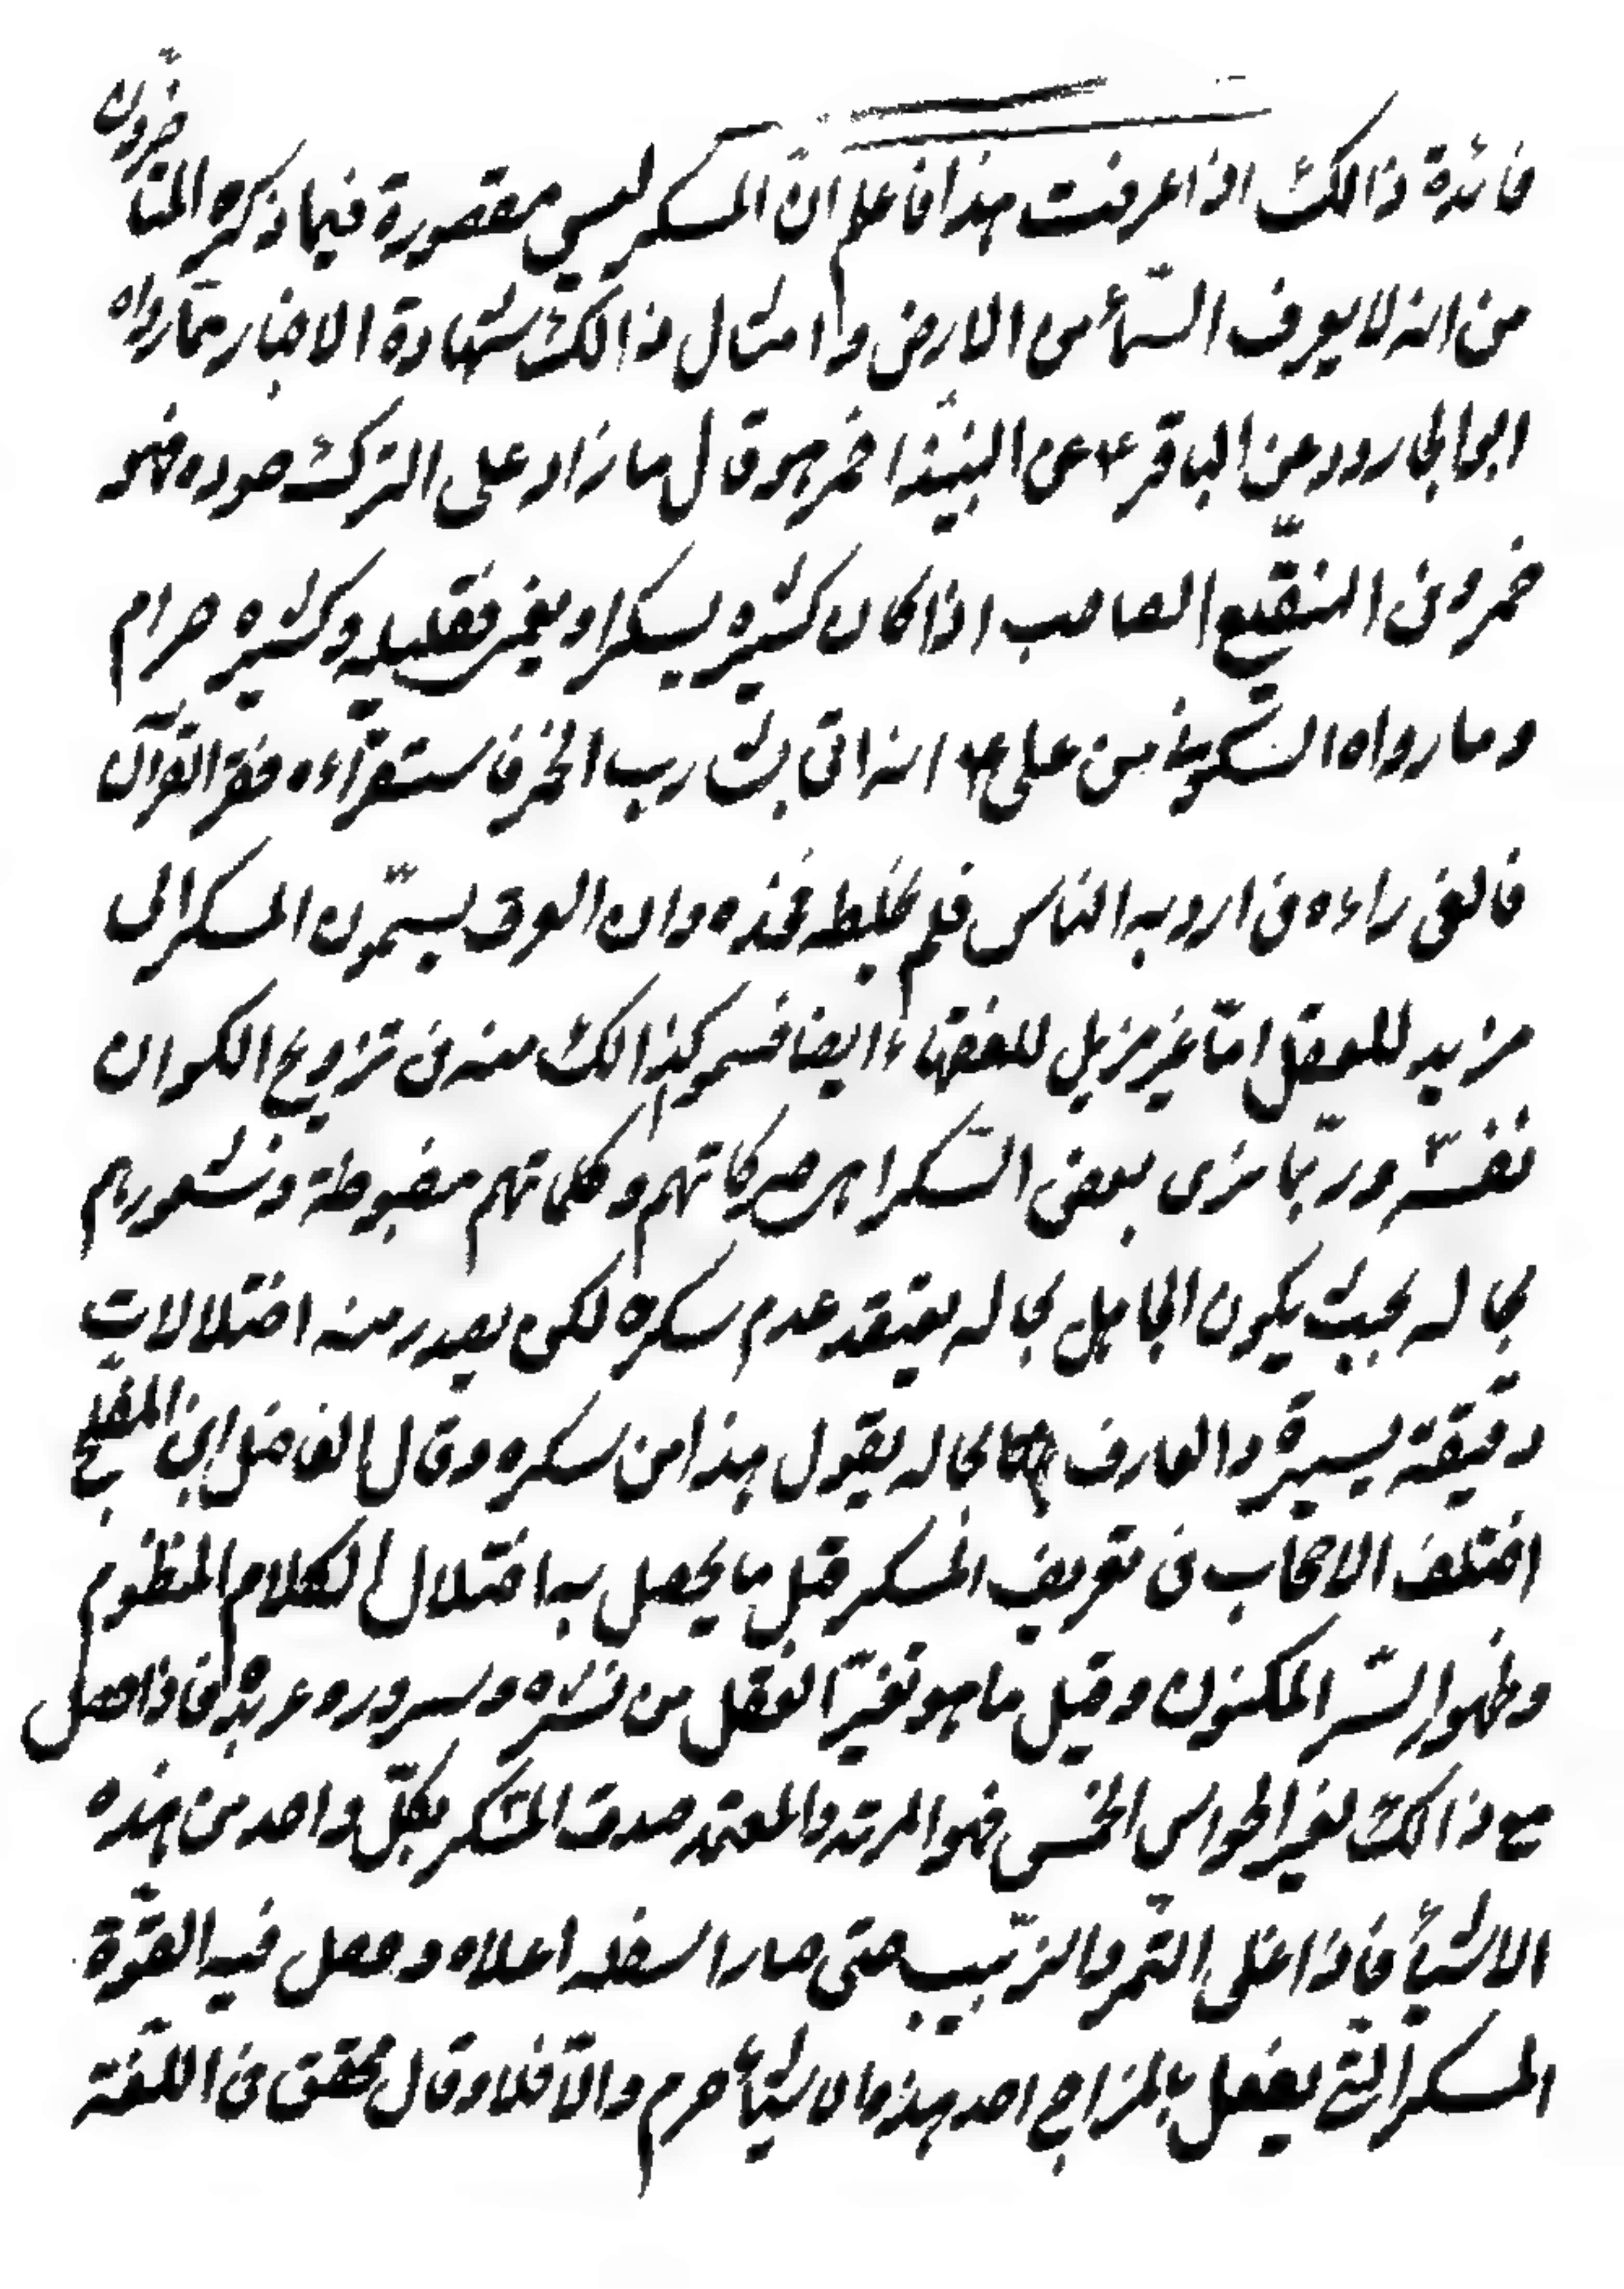 فائدة ذالك اذا عرفت هذا فاعلم ان المسكر ليس مقصورة فيما ذكره المتاخرون
من انه لا يعرف السّمأ من الارض وامثال ذالك شهادة الاخبار بما رواه
ابى الجارود عن الباقر ع عن النبيذ اخمر هو قال ما زاد على الترك جوده فهو
خمر وفى النقيع الصاصب اذا كان كثيره يسكر او يغمر فقليله وكثيره حرام
وما رواه السكونى من على ع انه اتى بشارب الخمر فاستقرآءه فقرا القرآن
فالقى راءه فى اردية الناس فلم يخلطه فحده وان العرف يسمّون المسكر الى
مزيد للعقل امّا غير مزيل للفقهاء ايضا فسمو كذالك منه فى تزويج السكران
نفسه وربّما نرى بعض السّكرا هى حركاتهم وكلماتهم مضبوطة وشعورهم
بحاله بحيث يكون الجاهل بحاله يعتقد عدم سكره لكى يصدر منه اختلالات
دقيقة يسيرة والعارف بحاله يقول هذا من سكره وقال الفاضل ابن المفلح
اختلف الاصحاب فى تعريف المسكر قيل ما يحصل به اختلال الكلام المنظوم
وظهور السّر المكنون وقيل ما هو تغيّر العقل من نشره وسرور وعربدة فاذا حصل
مع ذالك تغير الحواس الخمس فهو المرقد والمعتمد صدق المسكر بكلّ واحد من هذه
الاشيأ فاذا غلى التّمر والزّبيب حتى صار اسفله اعلاه وحصل فيه القوّة
المسكر الّتى يفعل بالمزاج احد هذه الاشيأ حرم والّا فلا وقال محقق فى اللّغة